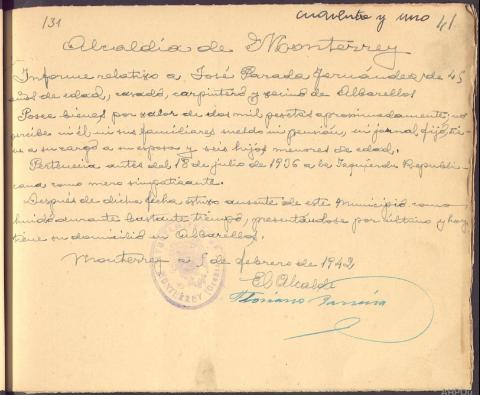 131
cuarenta y uno 41
Alcaldía de Monterrey
Informe relativo a, José Parada Fernández de 45
años de edad, casado, carpintero y vecino de Albarellos
Posee bienes por valor de dos mil pesetas aproximadamente, no
percibe ni él ni sus familiares sueldo ni pensión, ni jornal fijo, tie-
ne a su cargo a su esposa y seis hijos menores de edad.
Pertenecia antes del 18 de julio de 1936 a la Izquierda Republi-
cana como mero simpatizante.
Después de dicha fecha estuvo ausente de este Municipio como
huido durante bastante tiempo, presentándose por último y hoy
tiene su domicilio en Albarellos.
Monterrey a 5 de febrero de 1942
El Alcalde
Floriano
MONTERREY